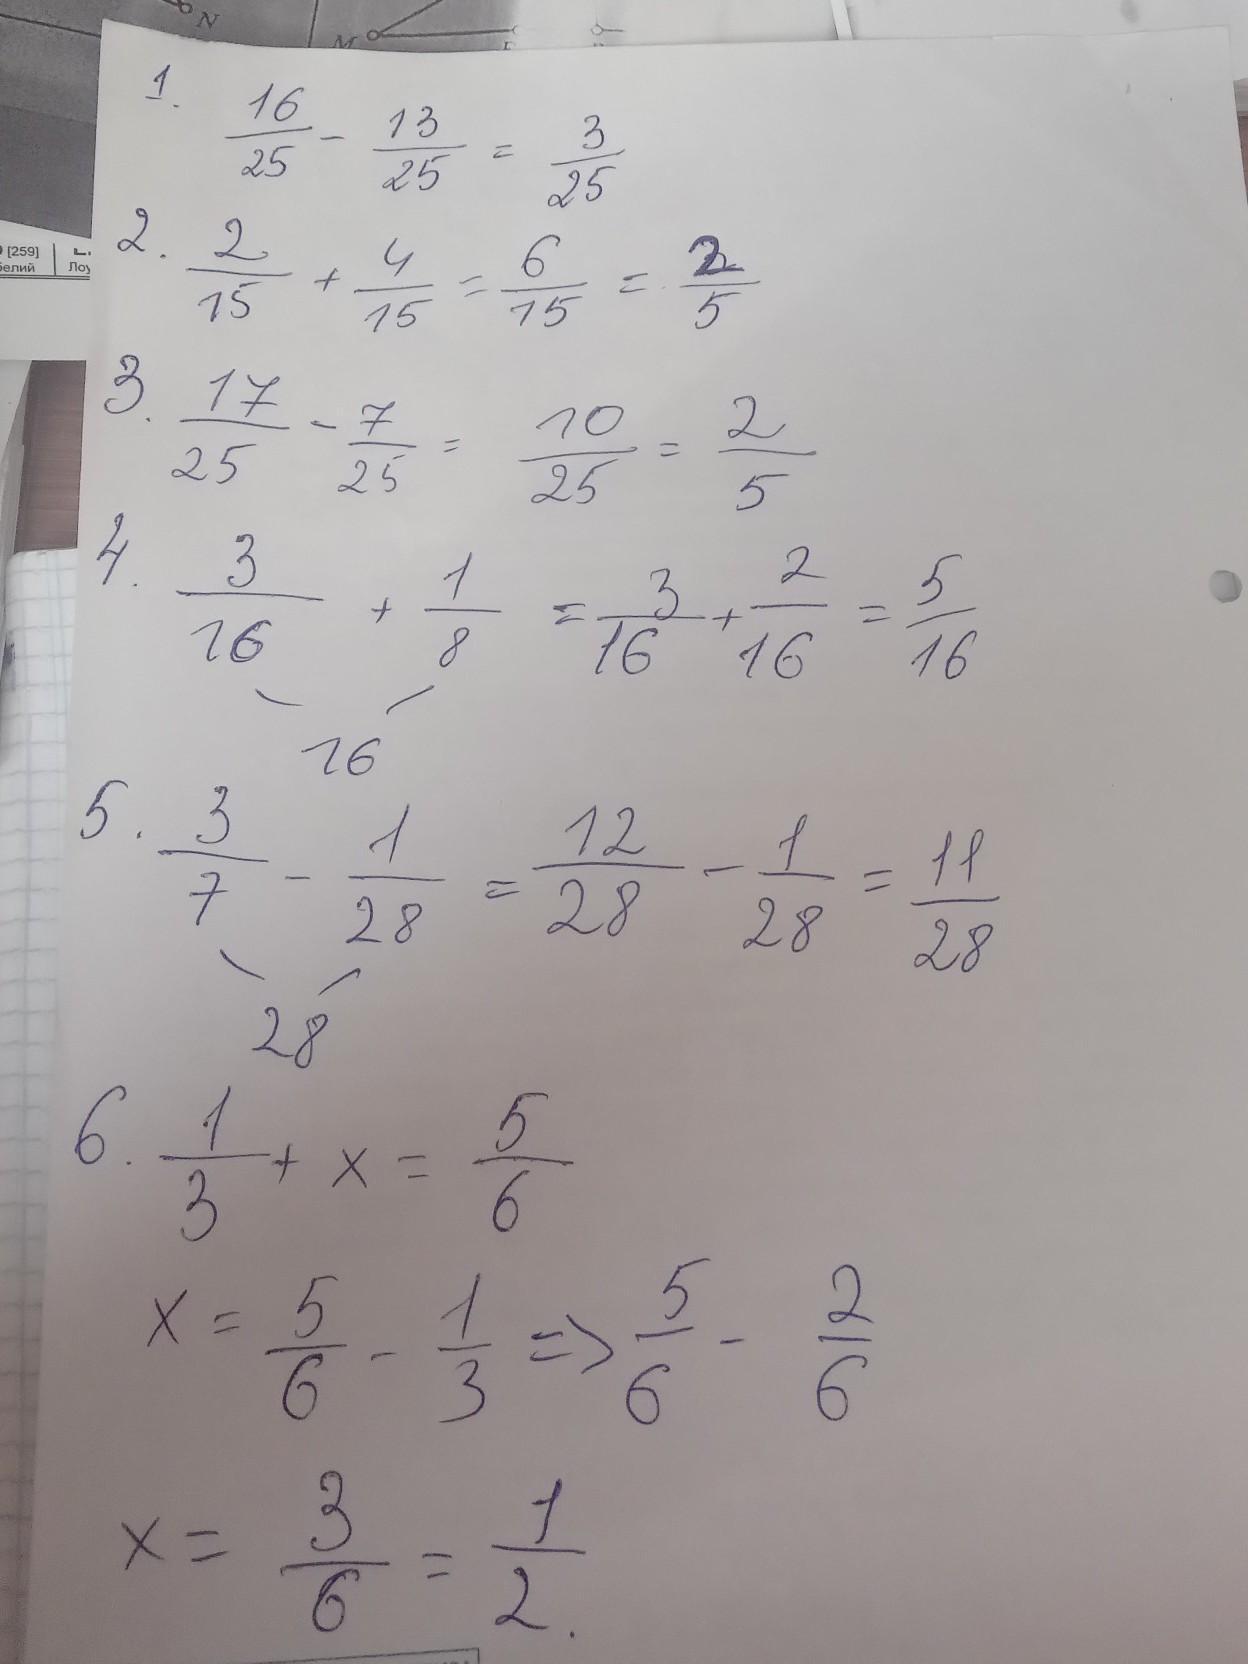 N
M
[259]
1. 16/25 - 13/25 = 3/25
2. 2/15 + 4/15 = 6/15 = 2/5
3. 17/25 - 7/25 = 10/25 = 2/5
4. 3/16 + 1/8 = 3/16 + 2/16 = 5/16
16
5. 3/7 - 1/28 = 12/28 - 1/28 = 11/28
28
6. 1/3 + x = 5/6
x = 5/6 - 1/3 => 5/6 - 2/6
x = 3/6 = 1/2.